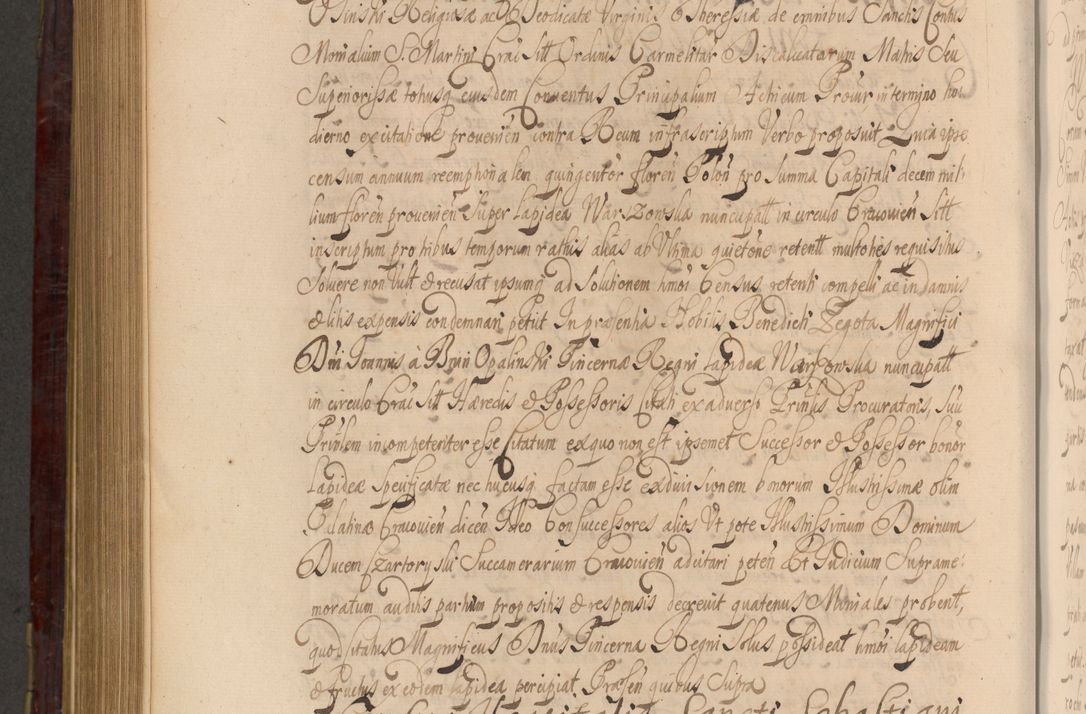 Osinski Religiosæ ac Deodicatæ Virginis Theressiæ de omnibus Sanctis Contus
Monialium S. Martini Crac Sitt Ordinis Carmelitar Discalceatarum Matris Seu
Superiorissæ totusq eiusdem Conventus Principalium Actricum Procur in termino ho:
dierno ex citatione provenien contra Reum infrascriptum Verbo proposuit Quia ipse
censum annuum reemptionalem quingentor floren Polon pro Summa Capitali decem mil:
lium floren provenien Super Lapidea Warszowska nuncupatt in circulo Cracovien Sitt
inscriptum pro tribus temporum rathis alias ab Vltima quietone retentt multoties requisitus
Solvere non Vult & recusat ipsumq ad Solutionem hmoi Census retenti compelli ac in damnis
& litis expensis condemnari petiit In præsentia Nobilis Benedicti Zegota Magnifici
Dni Joannis à Bnin Opalinski Pincernæ Regni Lapideæ Warszowska nuncupatt
in circulo Crac Sitt Hæredis & Possessoris Citati ex adverso Prinlis Procuratoris, Suu
Prinlem incompetenter esse Citatum ex quo non est ipsemet Successor & Possessor bonor
Lapideæ Specificatæ nec hucusq factam esse exdivisionem bonorum Illustrissimæ olim
Palatinæ Cracovien dicen Ideo Consuccessores alios Vt pote Illustrissimum Dominum
Ducem Czartoryski Succamerarium Cracovien adcitari peten Et Judicium Suprame:
moratum auditis partium propositis & responsis decrevit quatenus Moniales probent,
quod Citatus Magnificus Dnus Pincerna Regni Solus possideat hmoi lapideam
& fructus ex eodem lapidea percipiat Præsen quibus Supra
Sancti Sebastiani